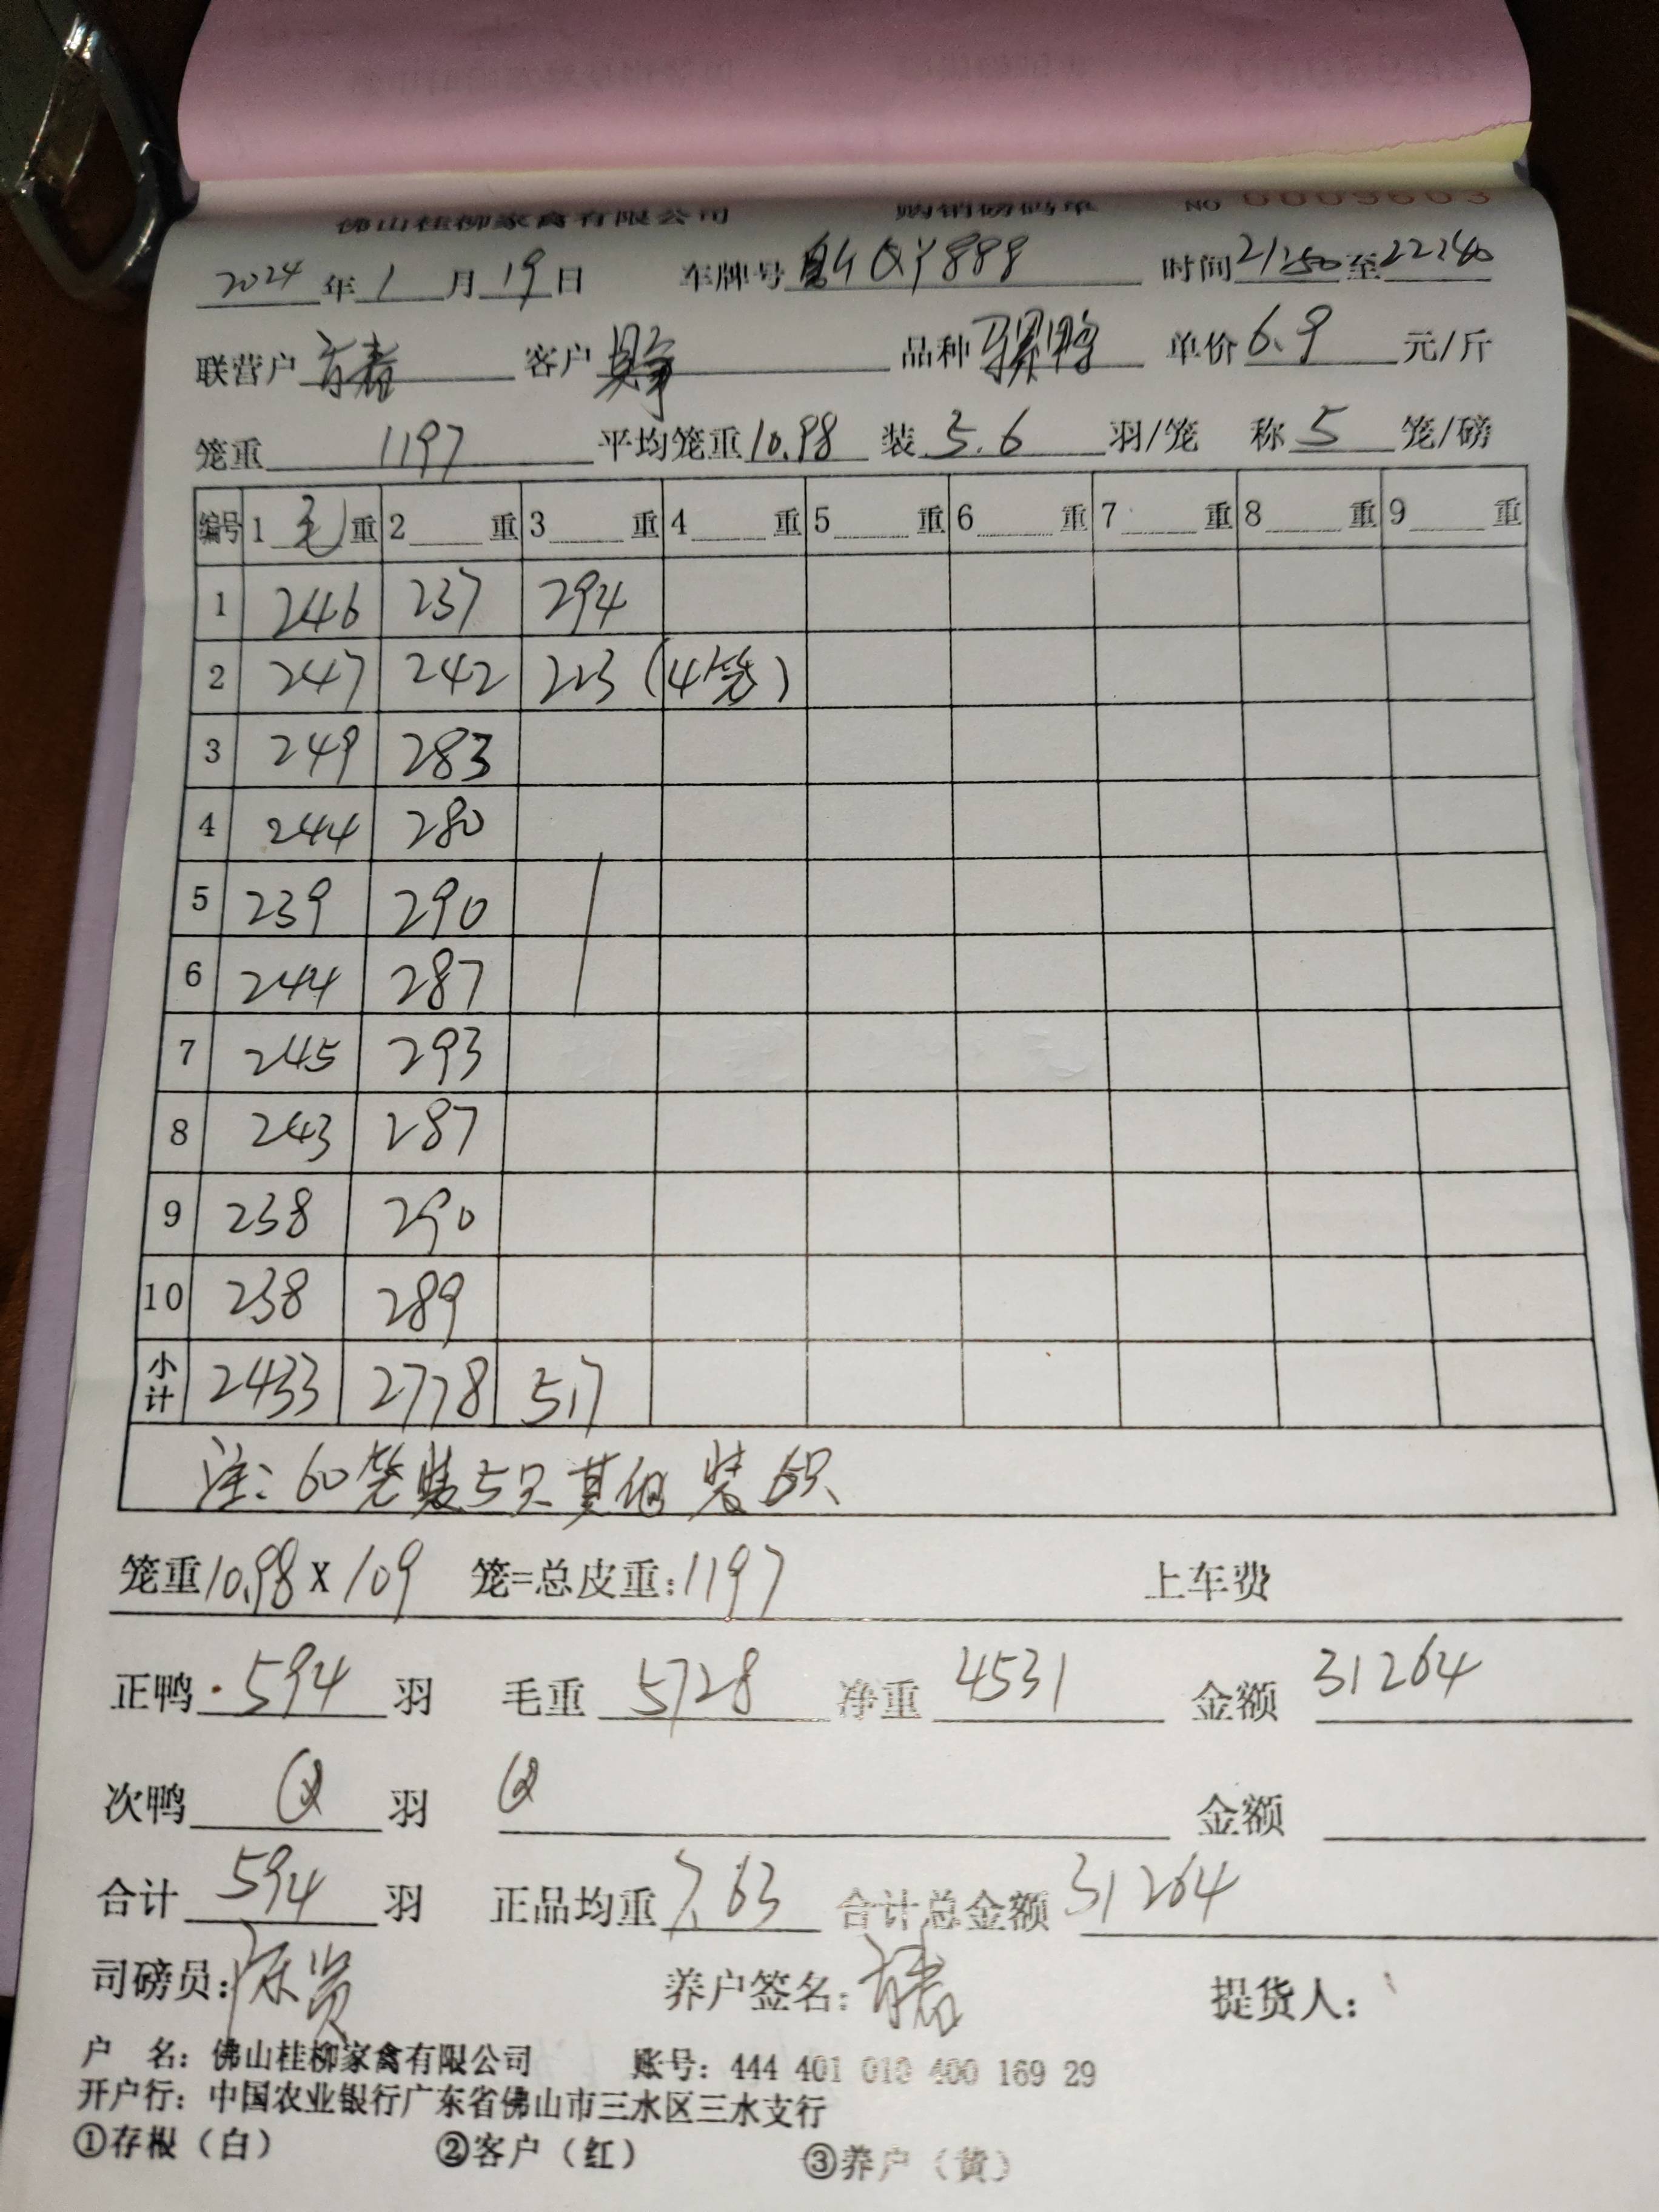 佛山桂柳家禽有限公司 购销磅码单 NO 0009603
2024年1月19日 车牌号 QY888 时间21:50至22:40
联营户 客户 品种 骡鸭 单价6.9元/斤
笼重1197 平均笼重10.98 装5.6羽/笼 称5笼/磅
编号 1毛重 2重 3重 4重 5重 6重 7重 8重 9重
1 246 237 294
2 247 242 223 (4笼)
3 249 283
4 244 280
5 239 290
6 244 287
7 245 293
8 243 287
9 238 290
10 238 289
小计 2433 2778 517
注:60笼装5只 其他装6只
笼重10.98×109笼=总皮重:1197 上车费
正鸭594羽 毛重5728 净重4531 金额31264
次鸭羽 金额
合计594羽 正品均重7.63 合计总金额31264
司磅员: 养户签名: 提货人:
户 名:佛山桂柳家禽有限公司 账号:444 401 010 400 169 29
开户行:中国农业银行广东省佛山市三水区三水支行
①存根(白) ②客户(红) ③养户(黄)